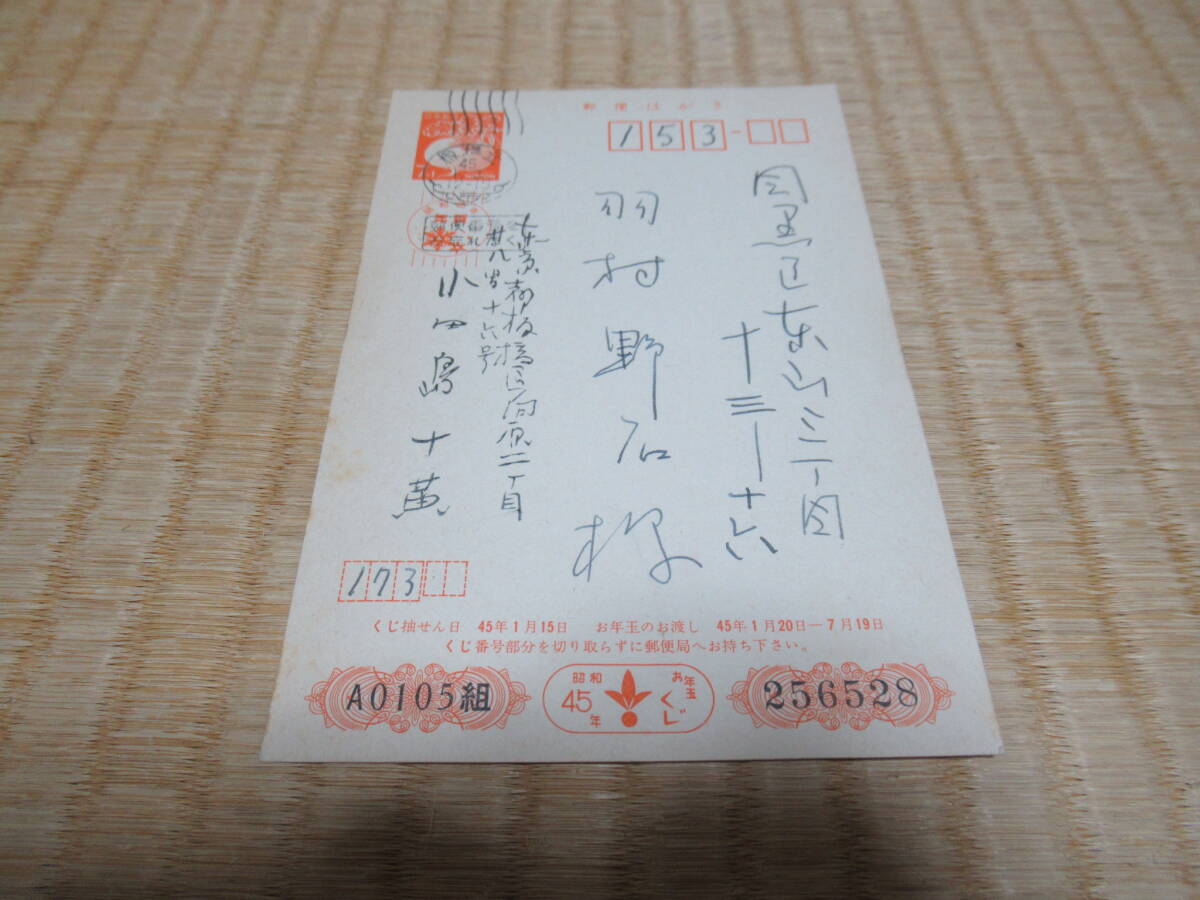 郵便はがき
153-
目黒区東山三丁目
十三ー十六
羽村野石様
東京都板橋区向原二丁目
廿八番十六号
小田島十黄
173
年賀
NIPPON
板橋
45
くじ抽せん日 45年1月15日 お年玉のお渡し 45年1月20日―7月19日
くじ番号部分を切り取らずに郵便局へお持ち下さい。
A0105組
昭和
45
年
お年玉
くじ
256528